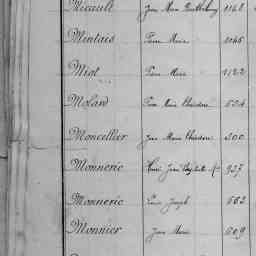 Micault Jean Marie 1048
Mintais Pierre Marie 1045
Miot Pierre Marie 1122
Molard Pierre Marie Théodore 524
Moncellier Jean Marie Théodore 500
Monneric Jean 937
Monneric Pierre Joseph 662
Monnier Jean Marie 609